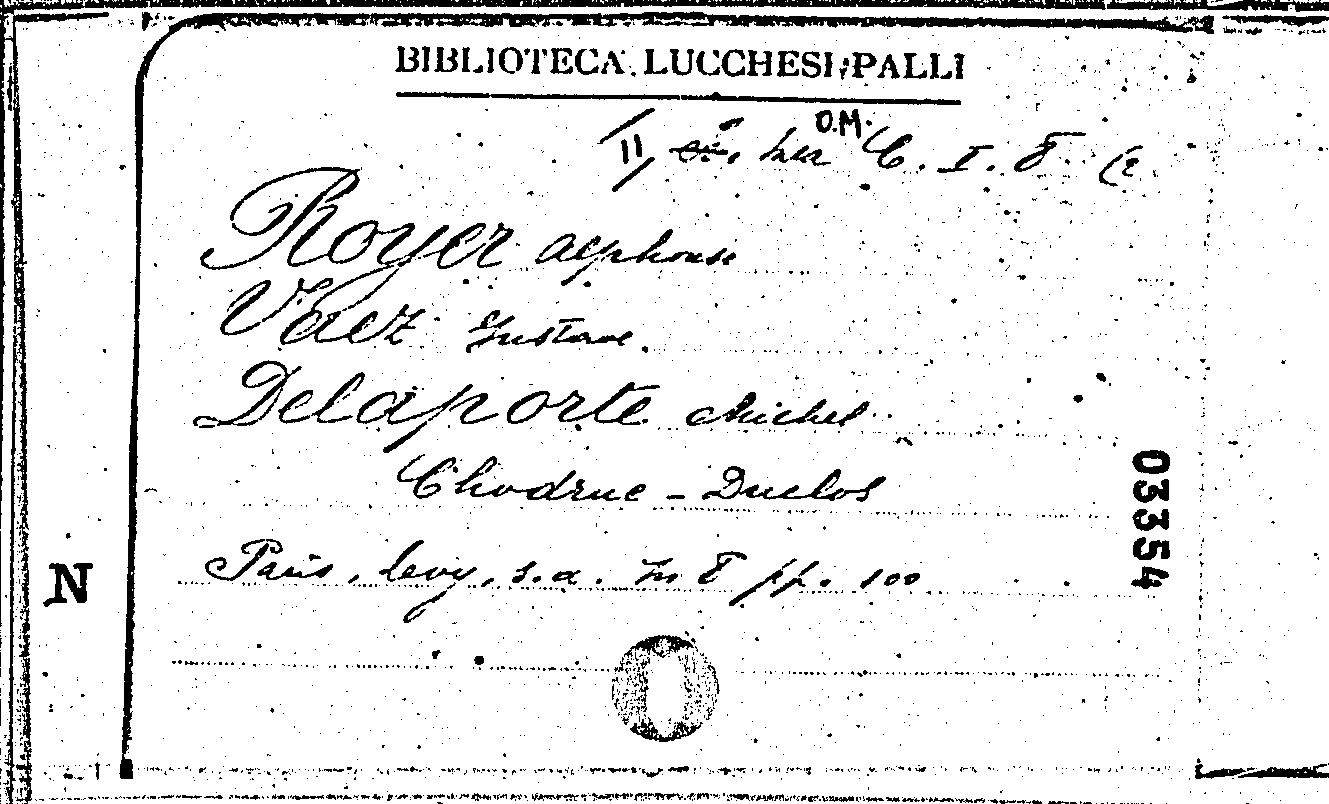 BIBLIOTECA LUCCHESI-PALLI
O.M.
II, C. I. 8 (2
Royer Alphonse
Vaez Gustave
Delaporte Michel
Chodruc-Duclos
03354
Paris, Levy, s.a. In 8 pp. 100
N